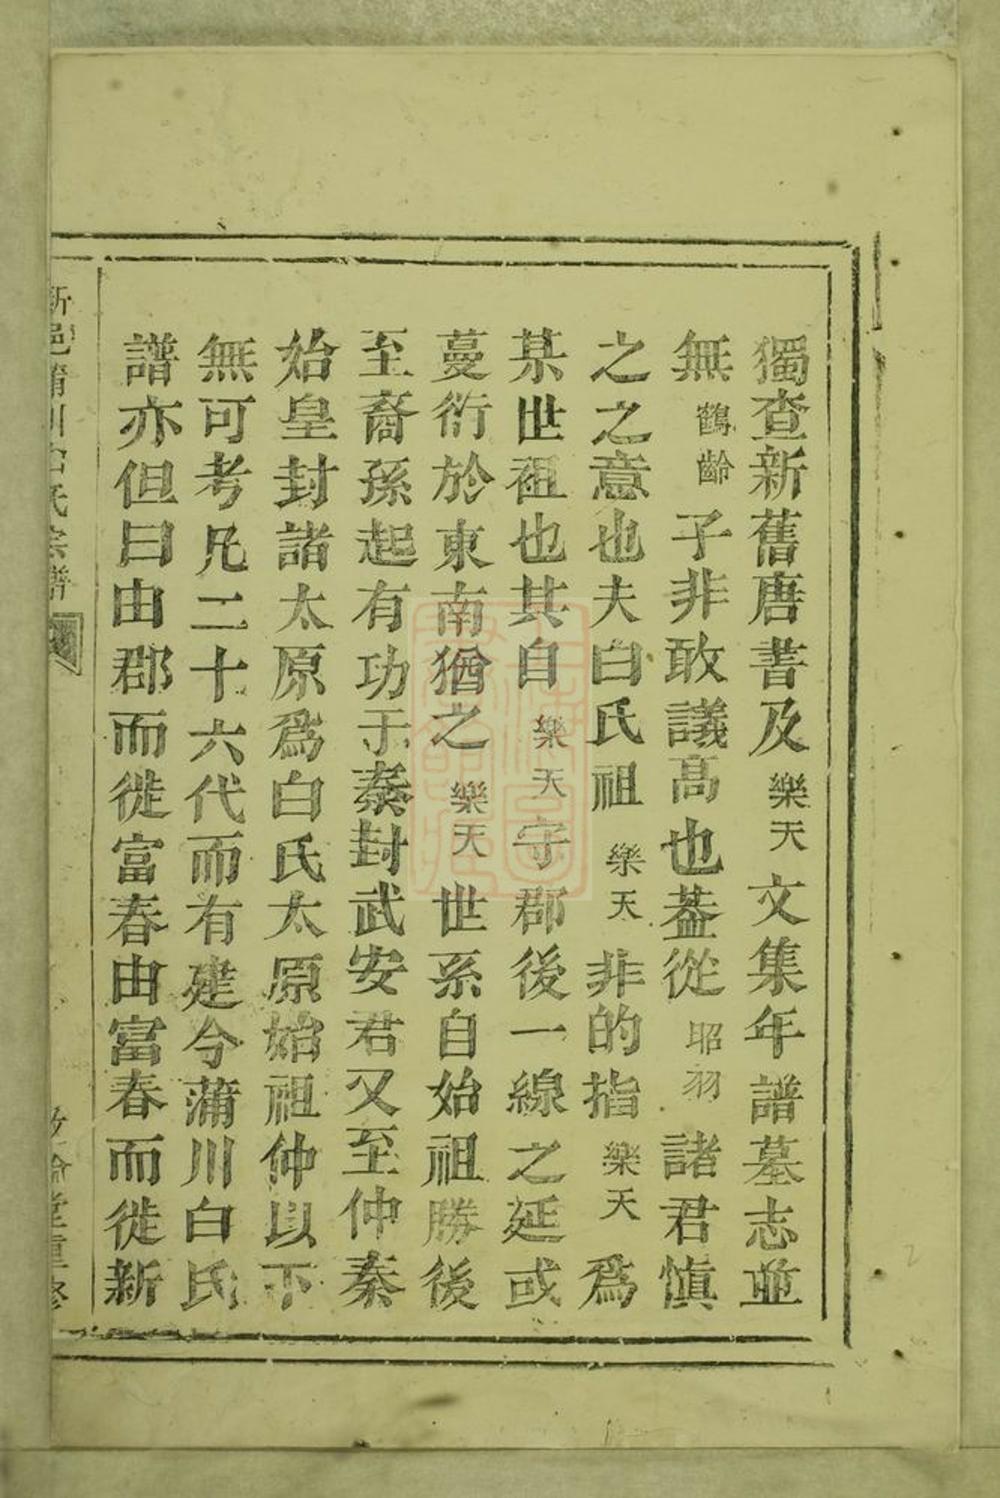 獨查新舊唐書及樂天文集年譜墓志並
無鶴齡子非敢議高也葢從昭羽諸君慎
之之意也夫白氏祖樂天非的指樂天為
某世祖也其自樂天守郡後一線之延或
蔓衍於東南猶之樂天世系自始祖勝後
至裔孫起有功于秦封武安君又至仲秦
始皇封諸太原爲白氏太原始祖仲以下
無可考凡二十六代而有建今蒲川白氏
譜亦但曰由郡而徙富春由富春而徙新
新邑蒲川白氏宗譜
堂重修